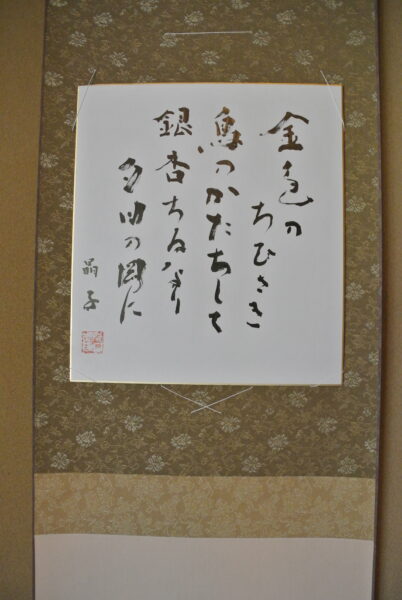 金色の
ちひさき
鳥のかたちして
銀杏ちるなり
夕日の岡に
晶子